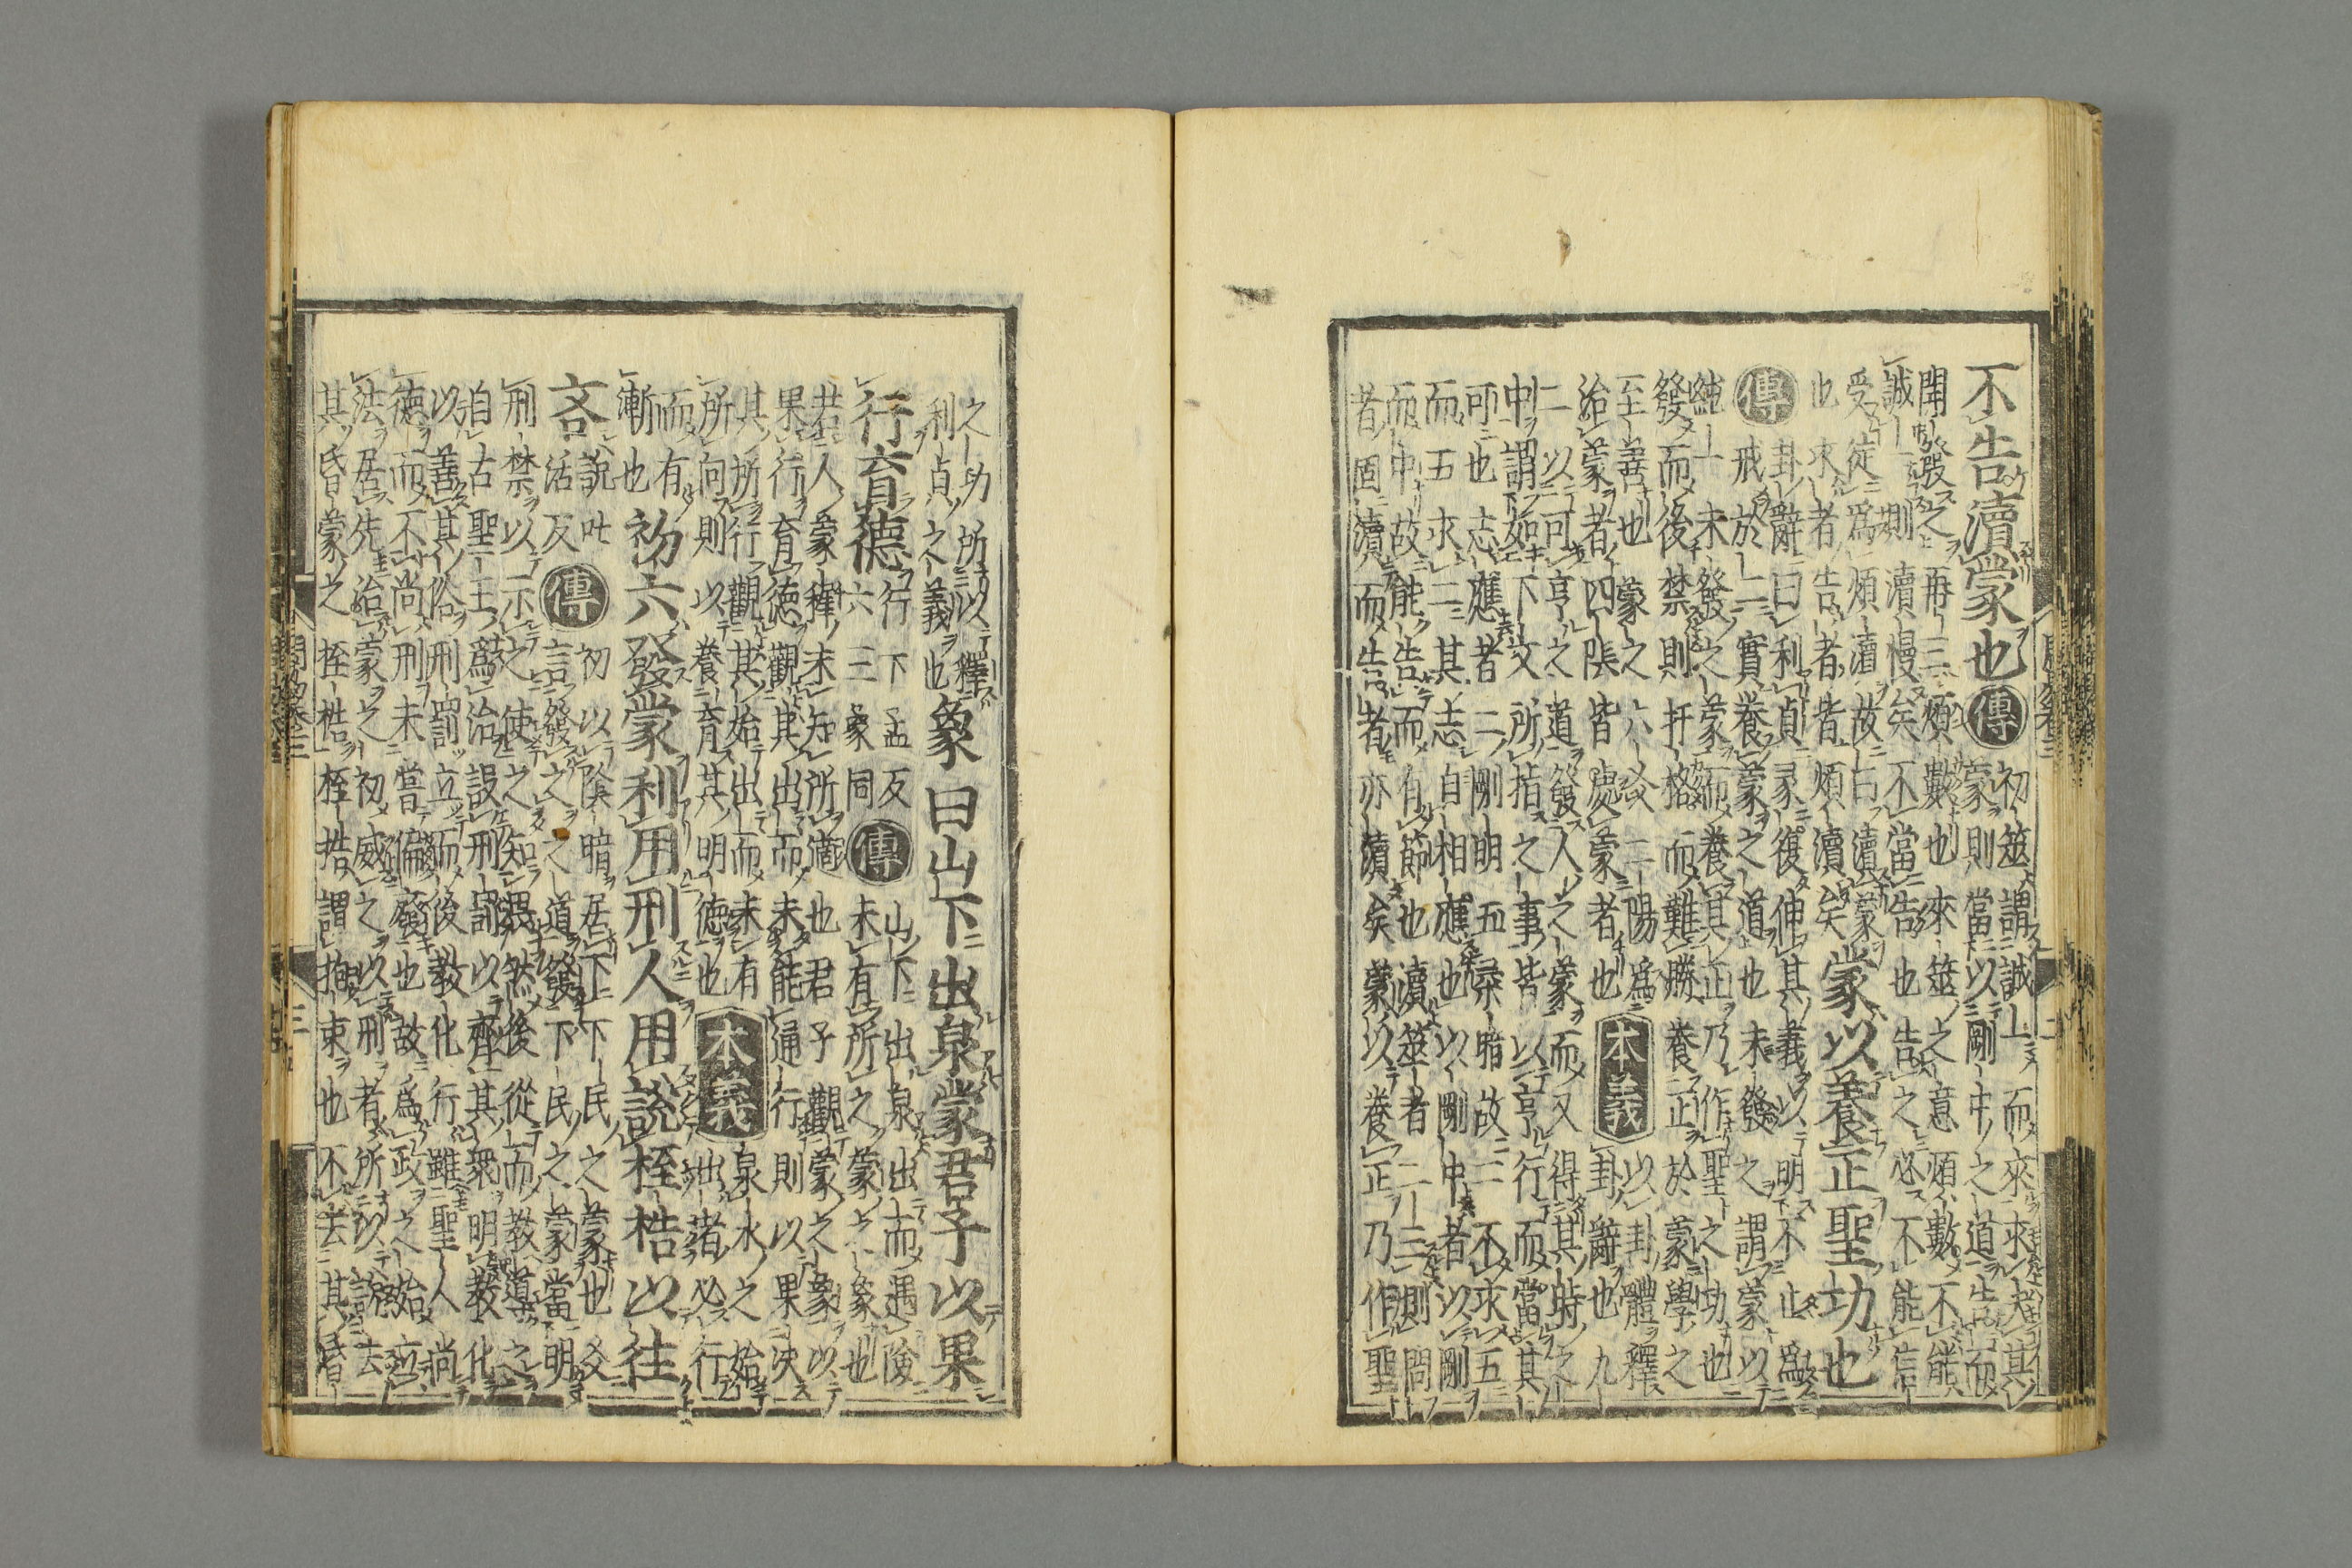 不告瀆蒙也傳初筮謂誠一而來求決其
蒙則當以剛中之道告而
開發之再三煩數也來筮之意煩數不能
誠一則瀆慢矣不當告也告之必不能信
受徒爲煩瀆故曰瀆蒙
也求者告者皆煩瀆矣
蒙以養正聖功也
傳卦辭曰利貞彖復伸其義以明不止爲
戒於二實養蒙之道也未發之謂蒙以
純一未發之蒙而養其正乃作聖之功也
發而後禁則扞格而難勝養正於蒙學之
至善也蒙之六爻二陽爲
治蒙者四陰皆處蒙者也
本義以卦體釋
卦辭也九
二以可亨之道發人之蒙而又得其時之
中謂如下文所指之事皆以亨行而當其
可也志應者二剛明五柔暗故二不求五
而五求二其志自相應也以剛中者以剛
而中故能告而有節也瀆筮者二三則問
者固瀆而告者亦瀆矣蒙以養正乃作聖
之功所以釋
利貞之義也
象曰山下出泉蒙君子以果
行育德行下孟反
六三象同
傳山下出泉出而遇險
未有所之蒙之象也
若人蒙穉未知所適也君子觀蒙之象以
果行育德觀其出而未能通行則以果決
其所行觀其始出而未有
所向則以養育其明德也
本義泉水之始
出者必行
而有
漸也
初六發蒙利用刑人用說桎梏以往
吝說吐
活反
傳初以陰暗居下下民之蒙也爻
言發之之道發下民之蒙當明
刑禁以示之使之知畏然後從而教導之
自古聖王爲治設刑罰以齊其衆明教化
以善其俗刑罰立而後教化行雖聖人尚
德而不尚刑未嘗偏廢也故爲政之始立
法居先治蒙之初威之以刑者所以說去
其昏蒙之桎梏桎梏謂拘束也不去其昏